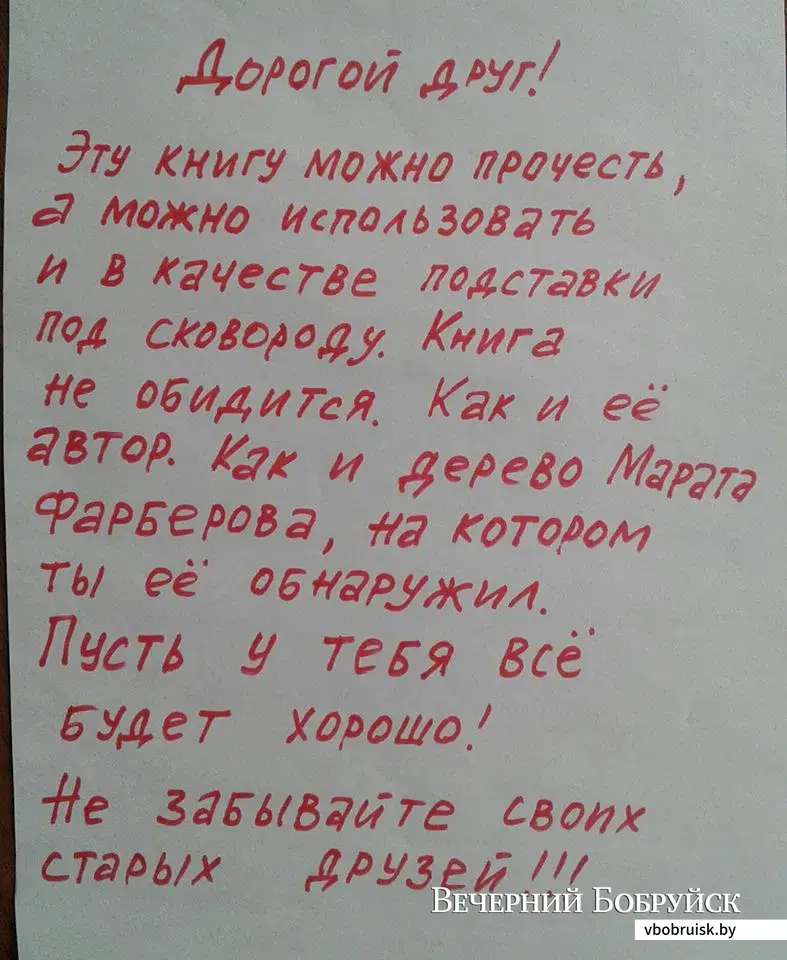 Дорогой друг!
Эту книгу можно прочесть,
а можно использовать
и в качестве подставки
под сковороду. Книга
не обидится. Как и её
автор. Как и дерево Марата
Фарберова, на котором
ты её обнаружил.
Пусть у тебя всё
будет хорошо!
Не забывайте своих
старых друзей!!!
Вечерний Бобруйск
vbobruisk.by